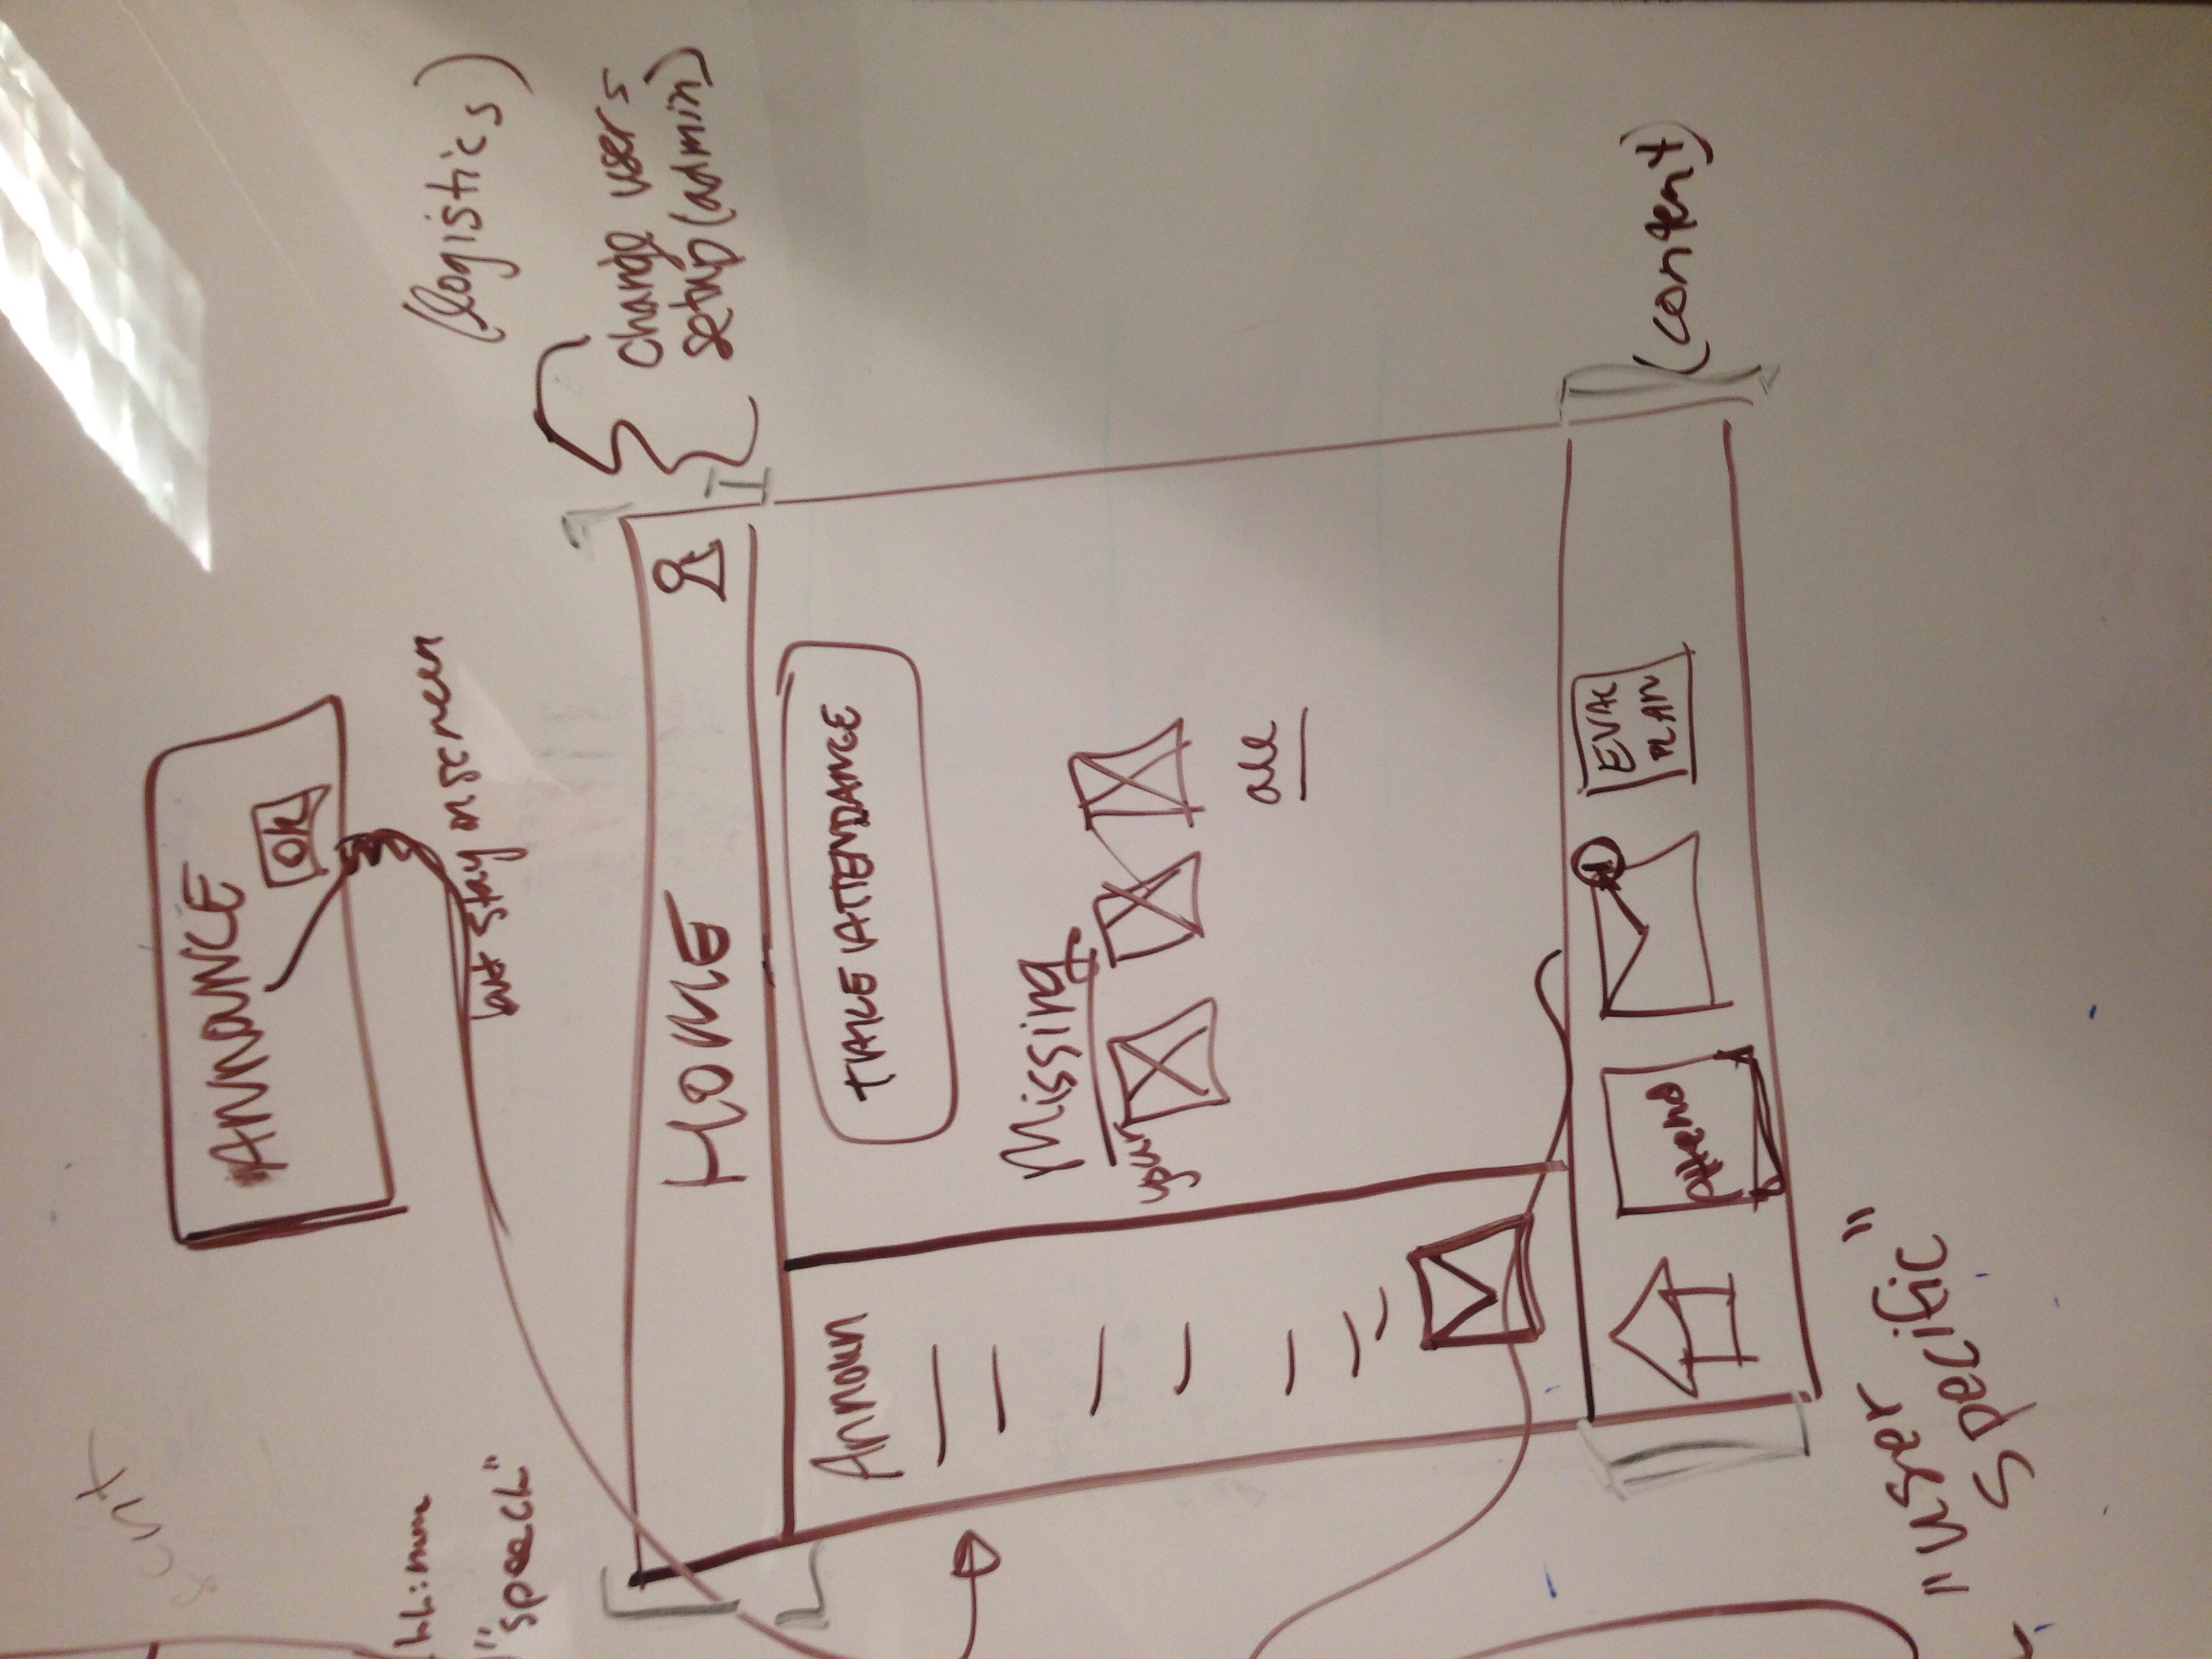 ANNOUNCE
OK
but stay on screen
"speech"
(logistics)
change users
setup (admin)
HOME
Announ
TAKE ATTENDANCE
Missing
your
all
Attend
1
EVAC
PLAN
(content)
"user
specific"